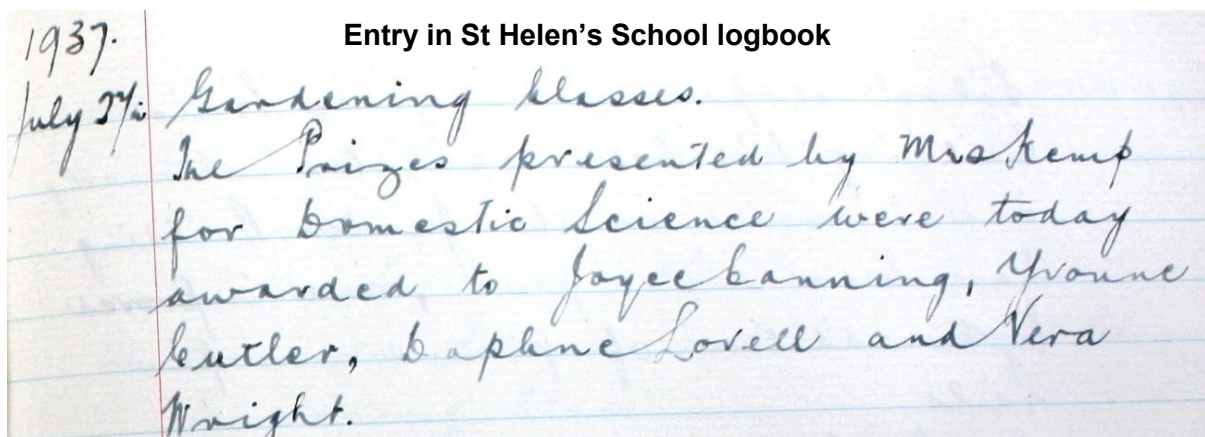 Entry in St Helen's School logbook
1937.
July 27th Gardening Classes.
The Prizes presented by Mrs Kemp
for Domestic Science were today
awarded to Joyce Canning, Yvonne
Cutler, Daphne Lovell and Vera
Wright.